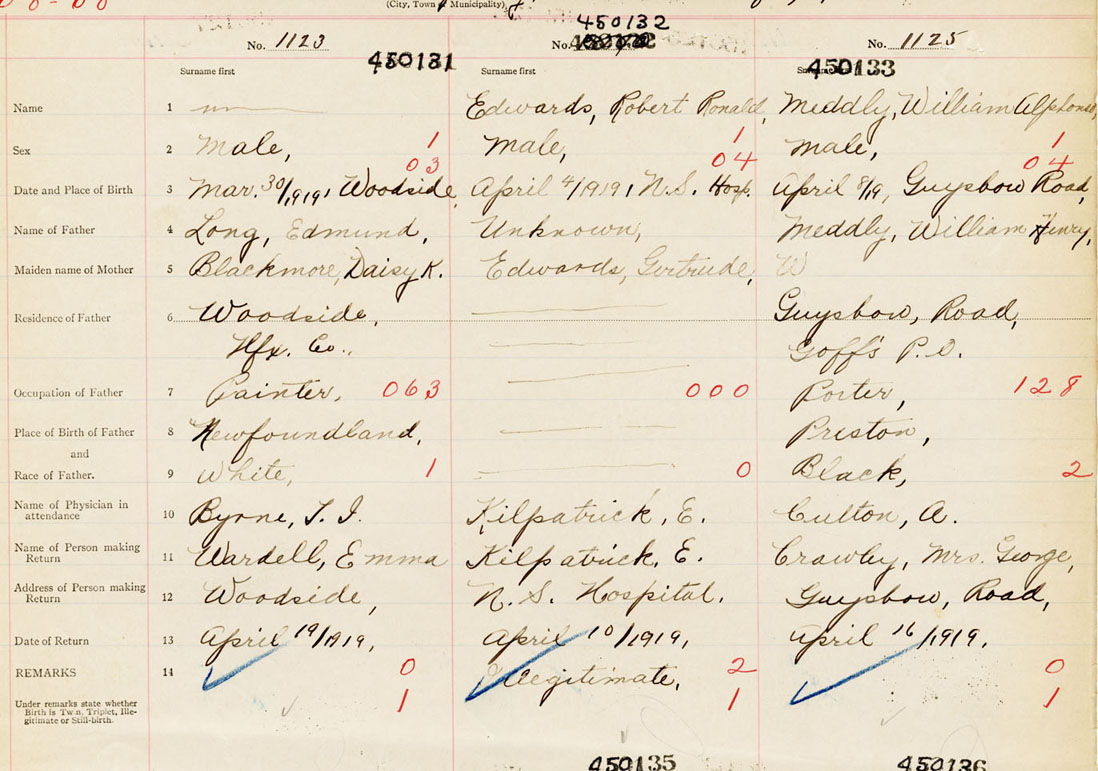 (City, Town Municipality)
No. 1123
450131
450132
No.
No. 1125
450133
Surname first
Surname first
Name 1 Edwards, Robert Ronald, Meddly, William Alphonso,
Sex 2 Male, 1 Male, 1 Male, 1
03 04 04
Date and Place of Birth 3 Mar. 30/1919, Woodside, April 4/1919, N.S. Hosp. April 8/19, Guysboro Road,
Name of Father 4 Long, Edmund, Unknown, Meddly, William Henry,
Maiden name of Mother 5 Blackmore, Daisy K. Edwards, Gertrude, W
Residence of Father 6 Woodside, Guysboro, Road,
Hfx. Co., Goff's P.O.
Occupation of Father 7 Painter, 063 000 Porter, 128
Place of Birth of Father 8 Newfoundland, Preston,
and
Race of Father. 9 White, 1 0 Black, 2
Name of Physician in
attendance 10 Byrne, T. J. Kilpatrick, E. Culton, A.
Name of Person making
Return 11 Wardell, Emma Kilpatrick, E. Crawley, Mrs. George,
Address of Person making
Return 12 Woodside, N. S. Hospital, Guysboro, Road,
Date of Return 13 April 19/1919, April 10/1919, April 16/1919,
REMARKS 14 0 Illegitimate, 2 0
Under remarks state whether
Birth is Twin, Triplet, Ille-
gitimate or Still-birth.
1 1 1
450135 450136